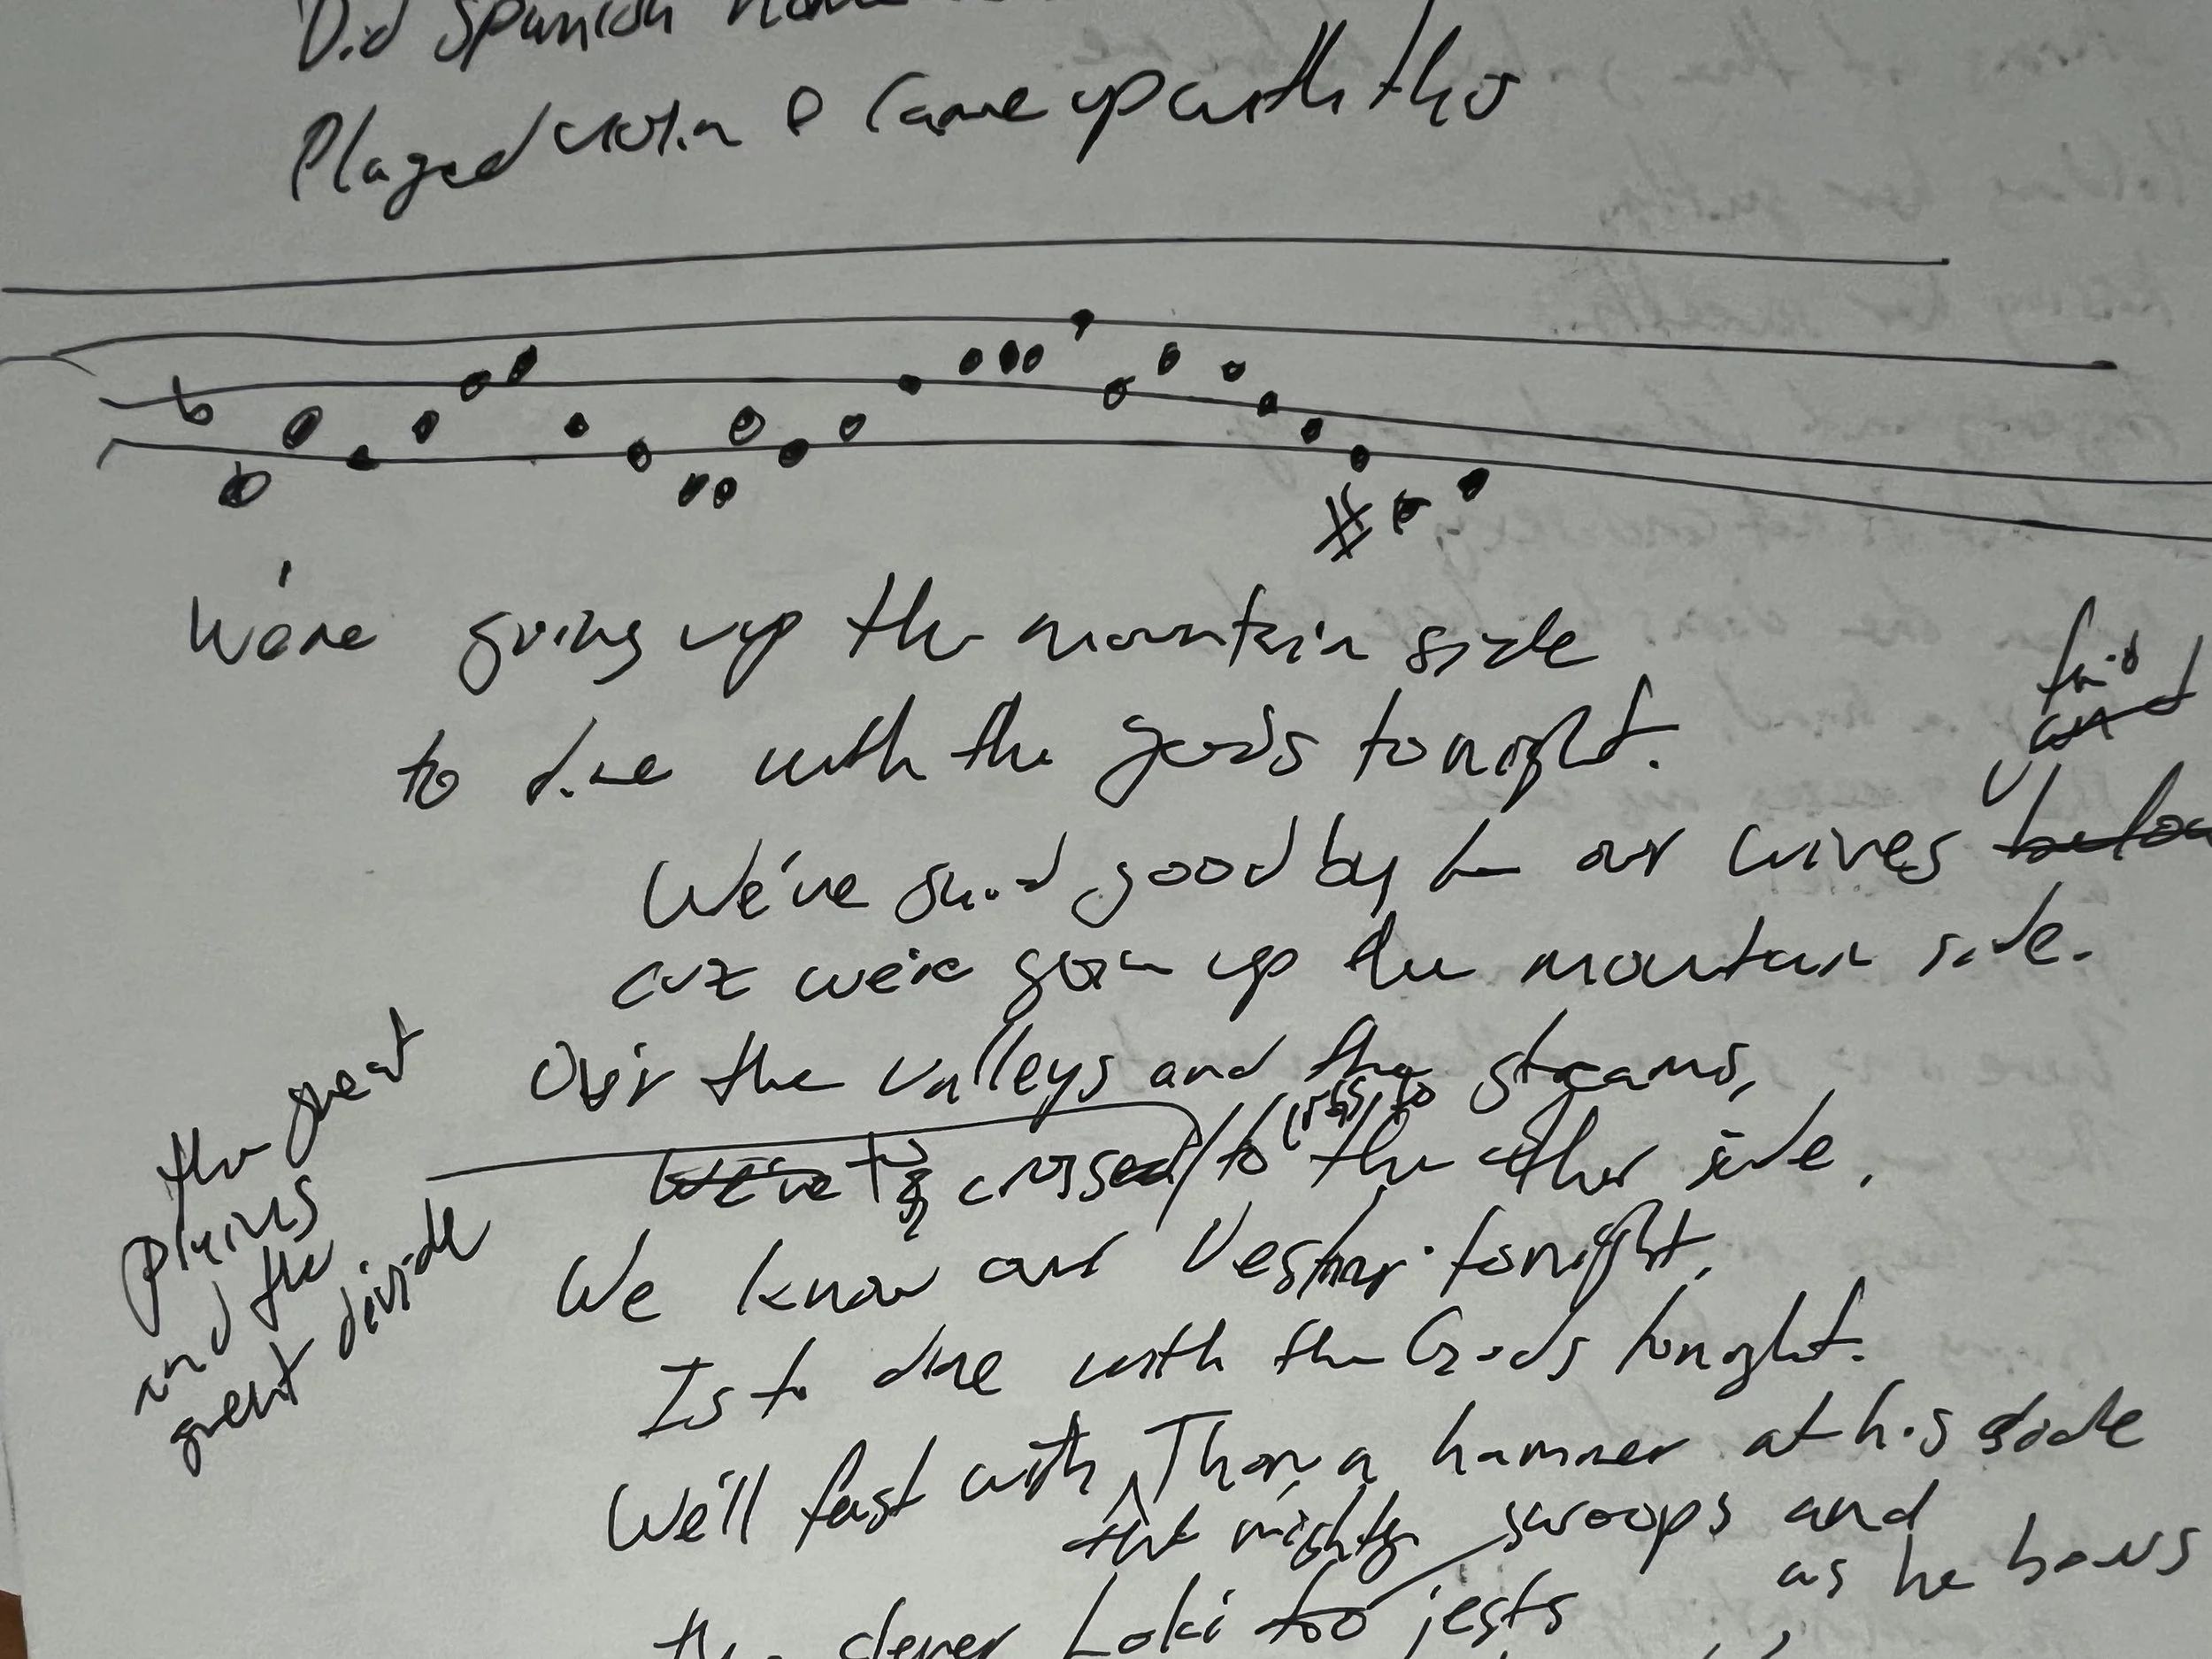 Did Spanish
Played violin & came up with this
We're going up the mountain side
to dine with the gods tonight.
fair
We've said goodby to our wives
cuz we're goin up the mountain side.
Over the valleys and the streams,
the great
plains
and the
great divide
cross to
We've to crossed to the other side.
We know our tonight,
Is to dine with the Gods tonight.
We'll feast with Thor, a hammer at his side
that mighty
swoops and
as he bows
clever Loki too jests